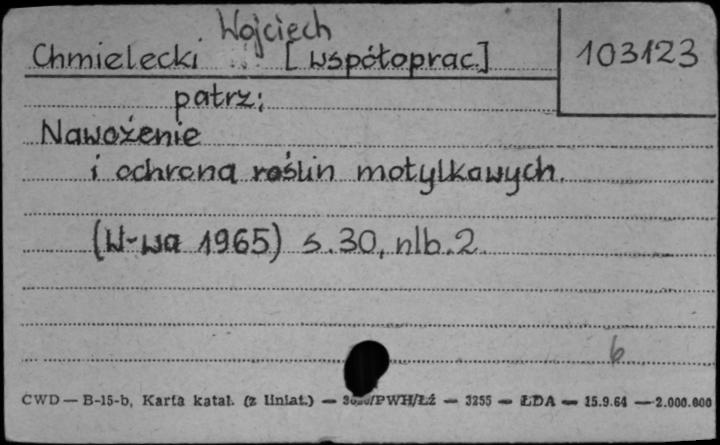 Wojciech
Chmielecki [współoprac.] 103123
patrz:
Nawożenie
i ochrona roślin motylkowych.
(W-wa 1965) s.30, nlb.2
6
CWD — B-15-b, Karta katal. (z liniat.) — /PWH/Łź — 3255 — ŁDA — 15.9.64 — 2.000.000